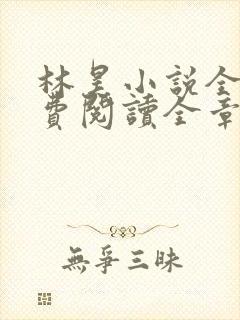 林昊小說全
費閱讀全章
無爭三昧